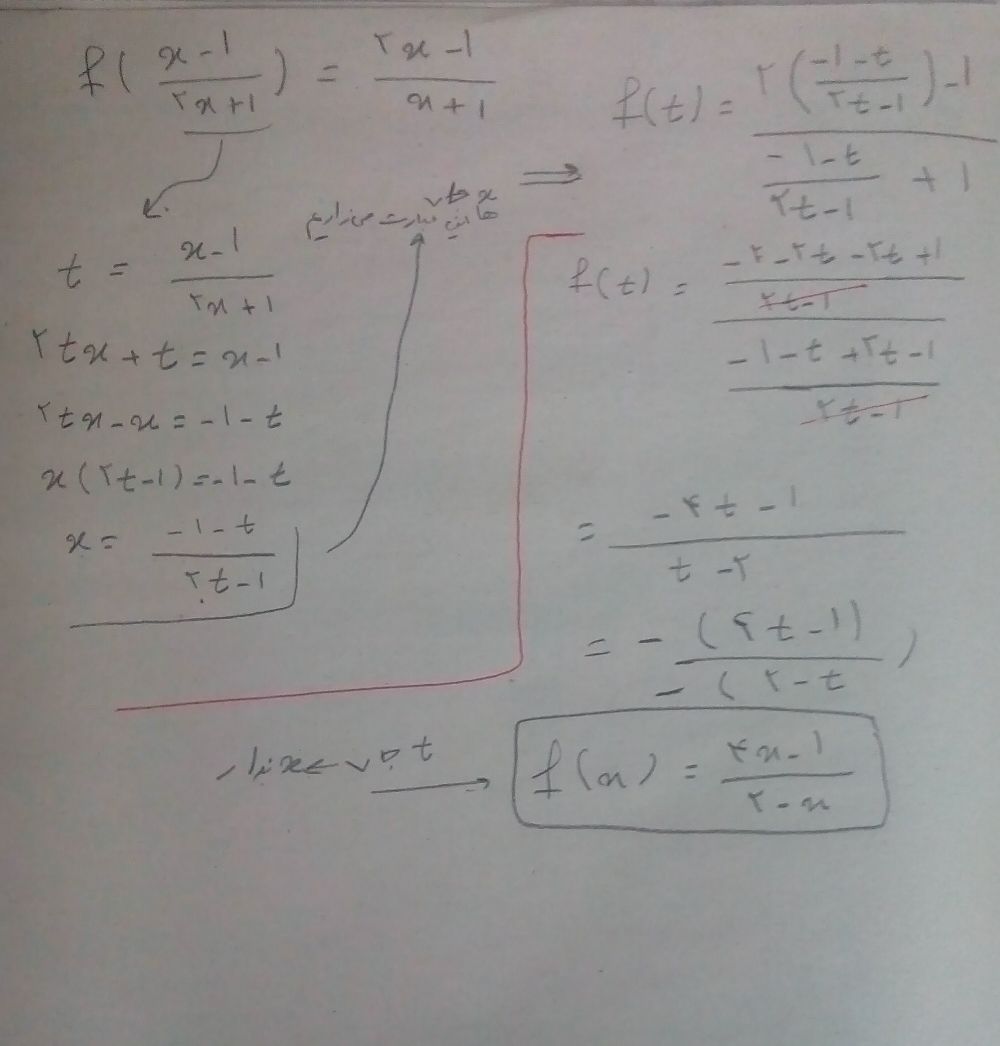 f(\frac{x-1}{۲x+1}) = \frac{۲x-1}{x+1}
t = \frac{x-1}{۲x+1}
۲tx + t = x-1
۲tx - x = -1-t
x(۲t-1) = -1-t
x = \frac{-1-t}{۲t-1}
x
عبارت می‌زاریم
⇒ f(t) = \frac{۲(\frac{-1-t}{۲t-1})-1}{\frac{-1-t}{۲t-1}+1}
f(t) = \frac{\frac{-۲-۲t-۲t+1}{۲t-1}}{\frac{-1-t+۲t-1}{۲t-1}}
= \frac{-۴t-1}{t-۲}
= \frac{-(۴t-1)}{-(۲-t)}
t
f(x) = \frac{۴x-1}{۲-x}